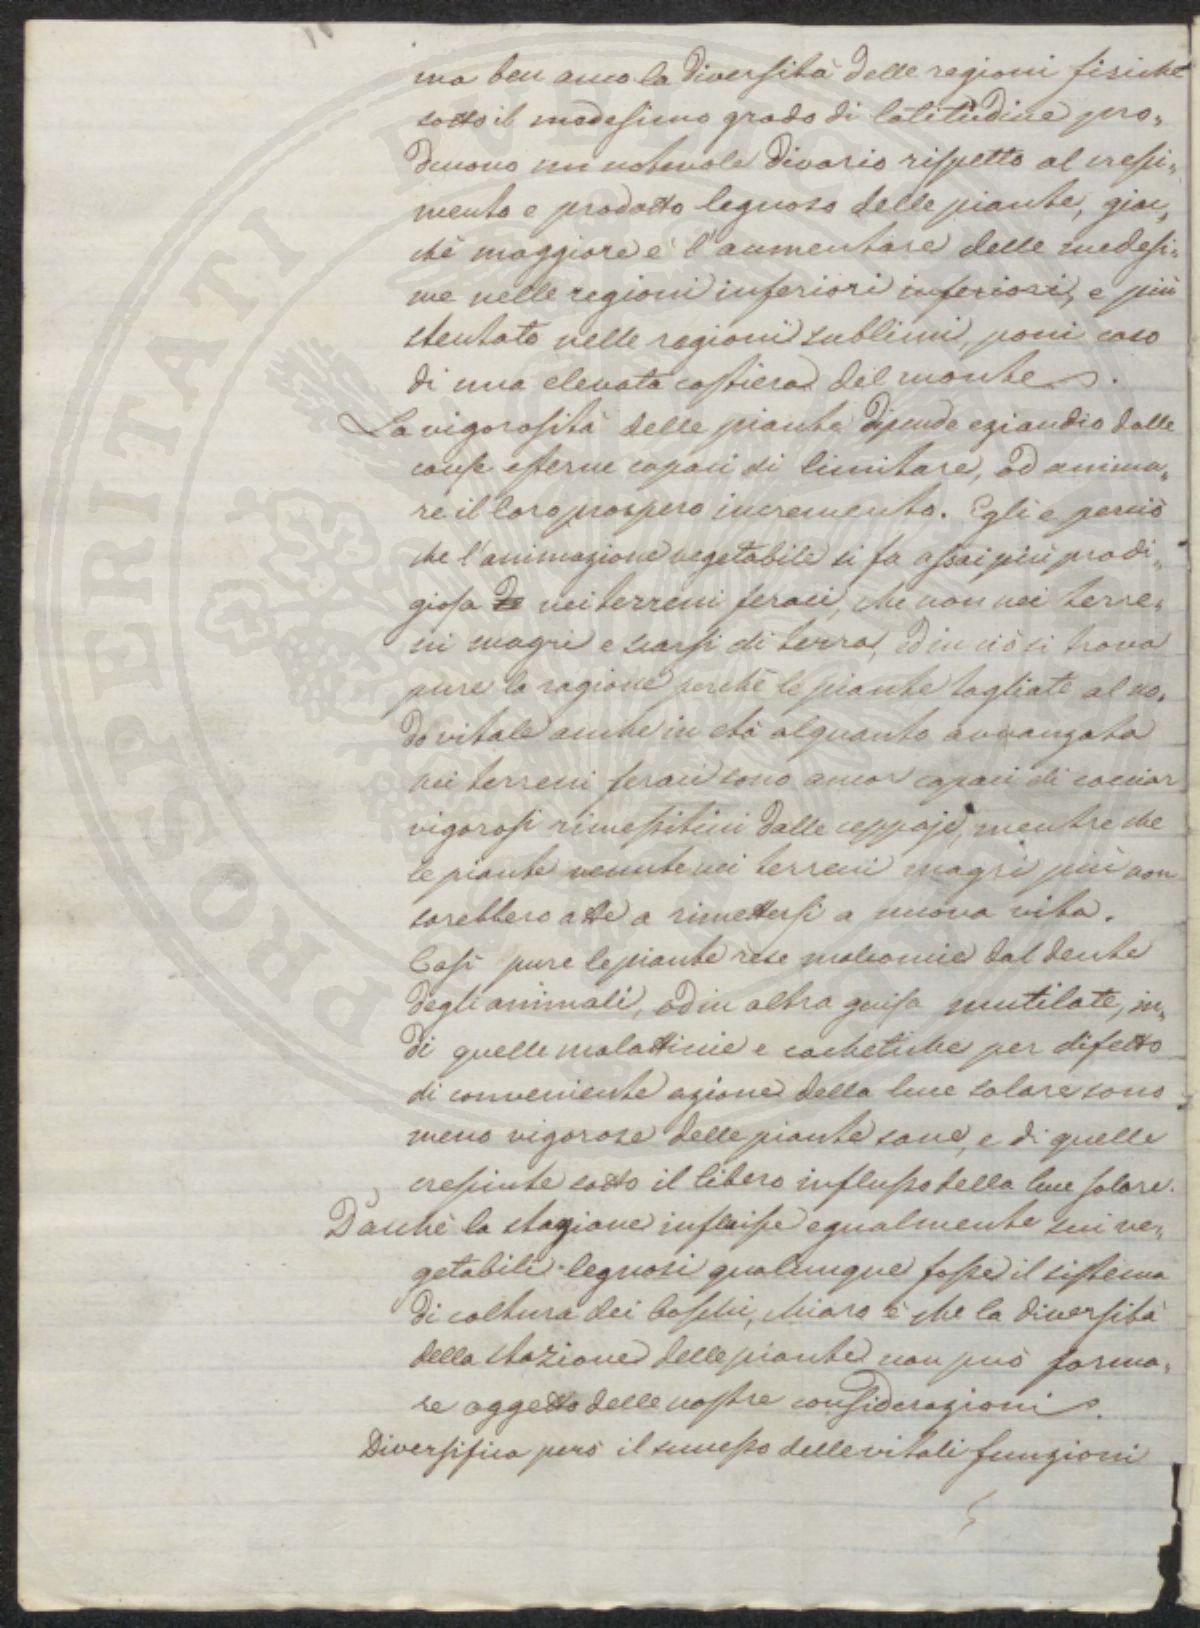 ma ben anco la diversità delle regioni fisiche
sotto il medesimo grado di latitudine pro„
ducono un notevole divario rispetto al cresci„
mento e prodotto legnoso delle piante, giac„
chè maggiore è l'aumentare delle medesi„
me nelle regioni inferiori inferiori, e più
stentato nelle regioni sublimi, poni caso
di una elevata costiera del monte.
La vigorosità delle piante dipende eziandio dalle
cause esterne capaci di limitare, od anima„
re il loro prospero incremento. Egli è perciò
che l'animazione vegetabile si fa assai più prodi„
giosa nei terreni feraci, che non nei terre„
ni magri e scarsi di terra, ed in ciò si trova
pure la ragione perchè le piante tagliate al no„
do vitale anche in età alquanto avvanzata
nei terreni feraci sono ancor capaci di cacciar
vigorosi rimessiticci dalle ceppaje, mentre che
le piante venute nei terreni magri più non
sarebbero atte a rimettersi a nuova vita.
Così pure le piante rese malconcie dal dente
degli animali, od in altra guisa mutilate, in„
di quelle malatticcie e cachetiche per difetto
di conveniente azione della luce solare sono
meno vigorose delle piante sane, e di quelle
cresciute sotto il libero influsso della luce solare.
Dacchè la stagione influisce egualmente sui ve„
getabili legnosi qualunque fosse il sistema
di coltura dei boschi, chiaro è che la diversità
della stazione delle piante non può forma„
re oggetto delle nostre considerazioni.
Diversifica però il successo delle vitali funzioni
PROSPERITATI PUBLICAE